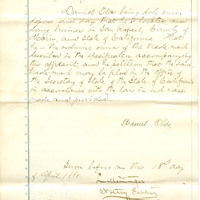 Daniel Cole being duly sworn
deposes and say that he is located and
doing business in San Rafael, County of
Marin and State of California. That
he is the exclusive owner of the trade mark
described in the specification accompanying
this affidavit, and the petition that the said
trade mark may be filed in the office of
the Secretary of State of the State of California
in accordance with the law in such case
made and provided.
Daniel
Sworn before me this 18th day
of April
Notary Public